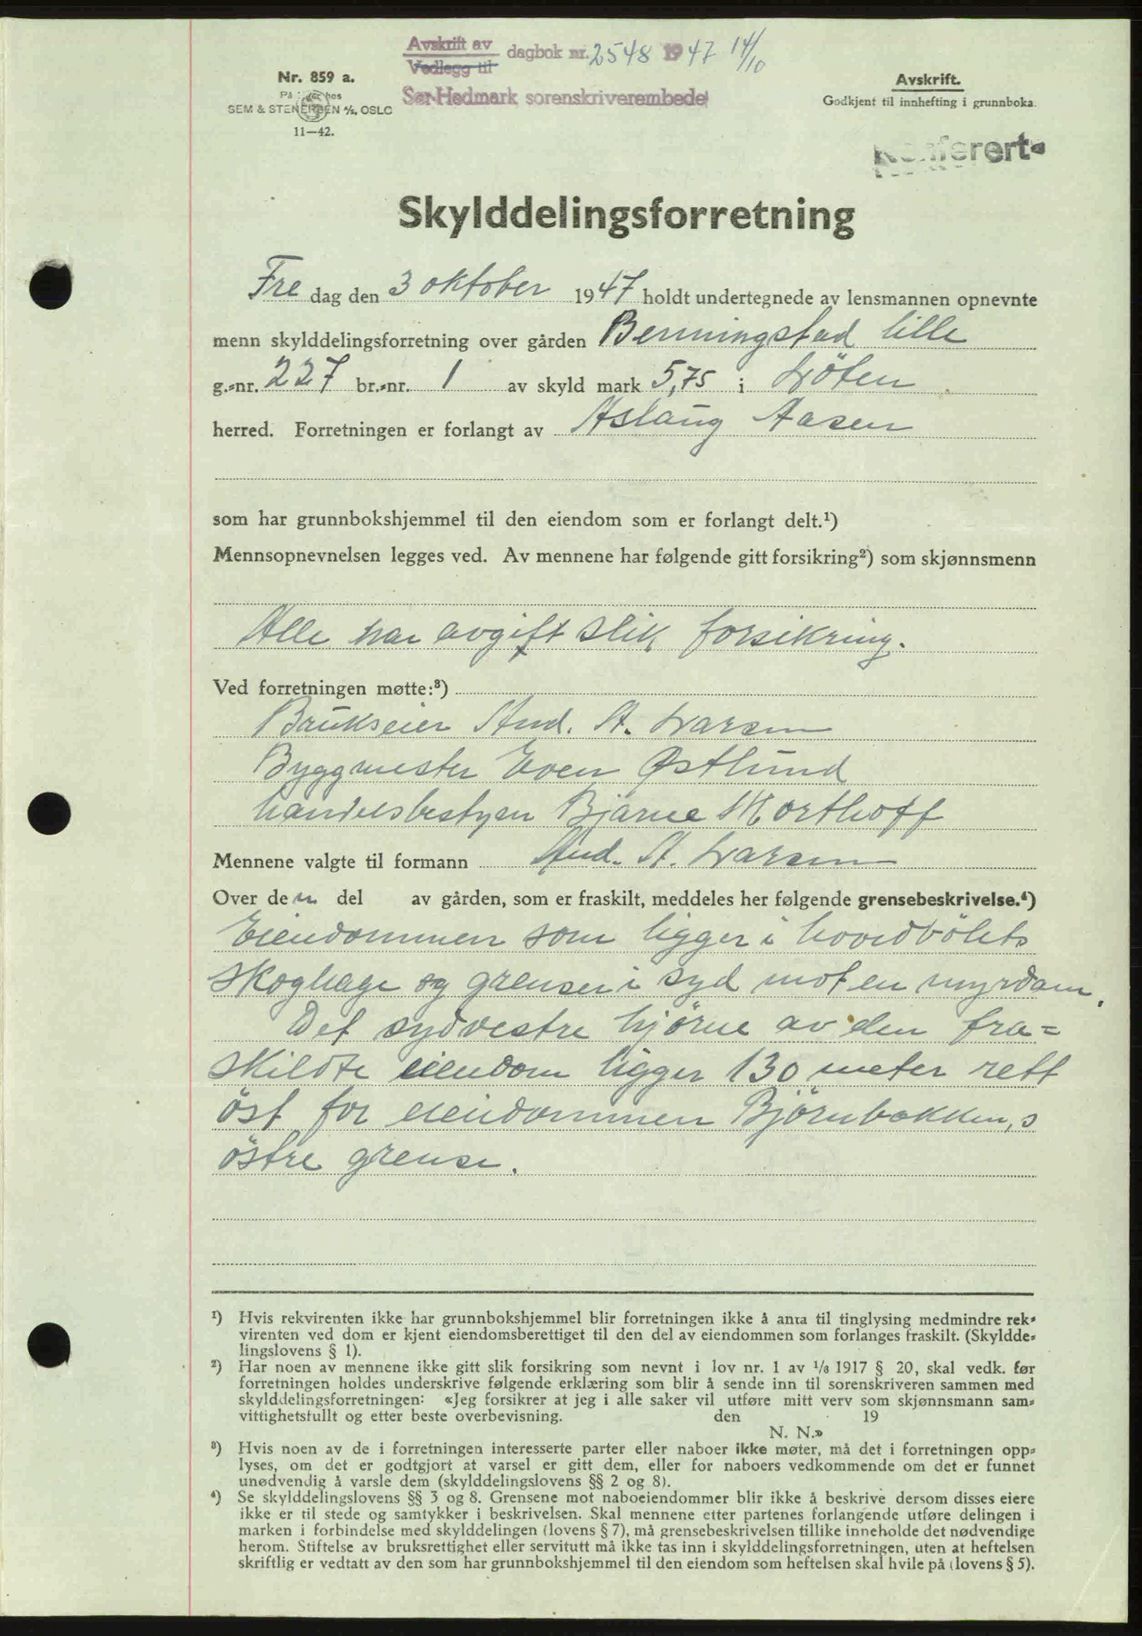 Avskrift av
Vedlegg til
dagbok nr. 2548 1947 14/10
Sør-Hedmark sorenskriverembede
Nr. 859 a.
SEM & STENERSEN A/S, OSLO
11—42.
Avskrift.
Godkjent til innhefting i grunnboka.
Konferert
Skylddelingsforretning
Fre dag den 3 oktober 1947 holdt undertegnede av lensmannen opnevnte
menn skylddelingsforretning over gården Benningstad lille
g.-nr. 227 br.-nr. 1 av skyld mark 5,75 i Löten
herred. Forretningen er forlangt av Aslaug Aasen
som har grunnbokshjemmel til den eiendom som er forlangt delt.¹)
Mennsopnevnelsen legges ved. Av mennene har følgende gitt forsikring²) som skjønnsmenn
Alle har avgift slik forsikring.
Ved forretningen møtte:³)
Brukseier And. A. Larsen
Byggmester Even Østlund
handelsbestyrer Bjarne Morthoff
Mennene valgte til formann And. A. Larsen
Over den del av gården, som er fraskilt, meddeles her følgende grensebeskrivelse.⁴)
Eiendommen som ligger i hovedbölets
skoghage og grenser i syd mot en myrdam.
Det sydvestre hjörne av den fra=
skildte eiendom ligger 130 meter rett
öst for eiendommen Björnbakken,s
östre grense.
¹) Hvis rekvirenten ikke har grunnbokshjemmel blir forretningen ikke å anta til tinglysing medmindre rek-
virenten ved dom er kjent eiendomsberettiget til den del av eiendommen som forlanges fraskilt. (Skyldde-
lingslovens § 1).
²) Har noen av mennene ikke gitt slik forsikring som nevnt i lov nr. 1 av 1/8 1917 § 20, skal vedk. før
forretningen holdes underskrive følgende erklæring som blir å sende inn til sorenskriveren sammen med
skylddelingsforretningen: «Jeg forsikrer at jeg i alle saker vil utføre mitt verv som skjønnsmann sam-
vittighetsfullt og etter beste overbevisning. den 19
N. N.»
³) Hvis noen av de i forretningen interesserte parter eller naboer ikke møter, må det i forretningen opp-
lyses, om det er godtgjort at varsel er gitt dem, eller for naboers vedkommende om det er funnet
unødvendig å varsle dem (skylddelingslovens §§ 2 og 8).
⁴) Se skylddelingslovens §§ 3 og 8. Grensene mot naboeiendommer blir ikke å beskrive dersom disses eiere
ikke er til stede og samtykker i beskrivelsen. Skal mennene etter partenes forlangende utføre delingen i
marken i forbindelse med skylddelingen (lovens § 7), må grensebeskrivelsen tillike inneholde det nødvendige
herom. Stiftelse av bruksrettighet eller servitutt må ikke tas inn i skylddelingsforretningen, uten at heftelsen
skriftlig er vedtatt av den som har grunnbokshjemmel til den eiendom som heftelsen skal hvile på (lovens § 5).